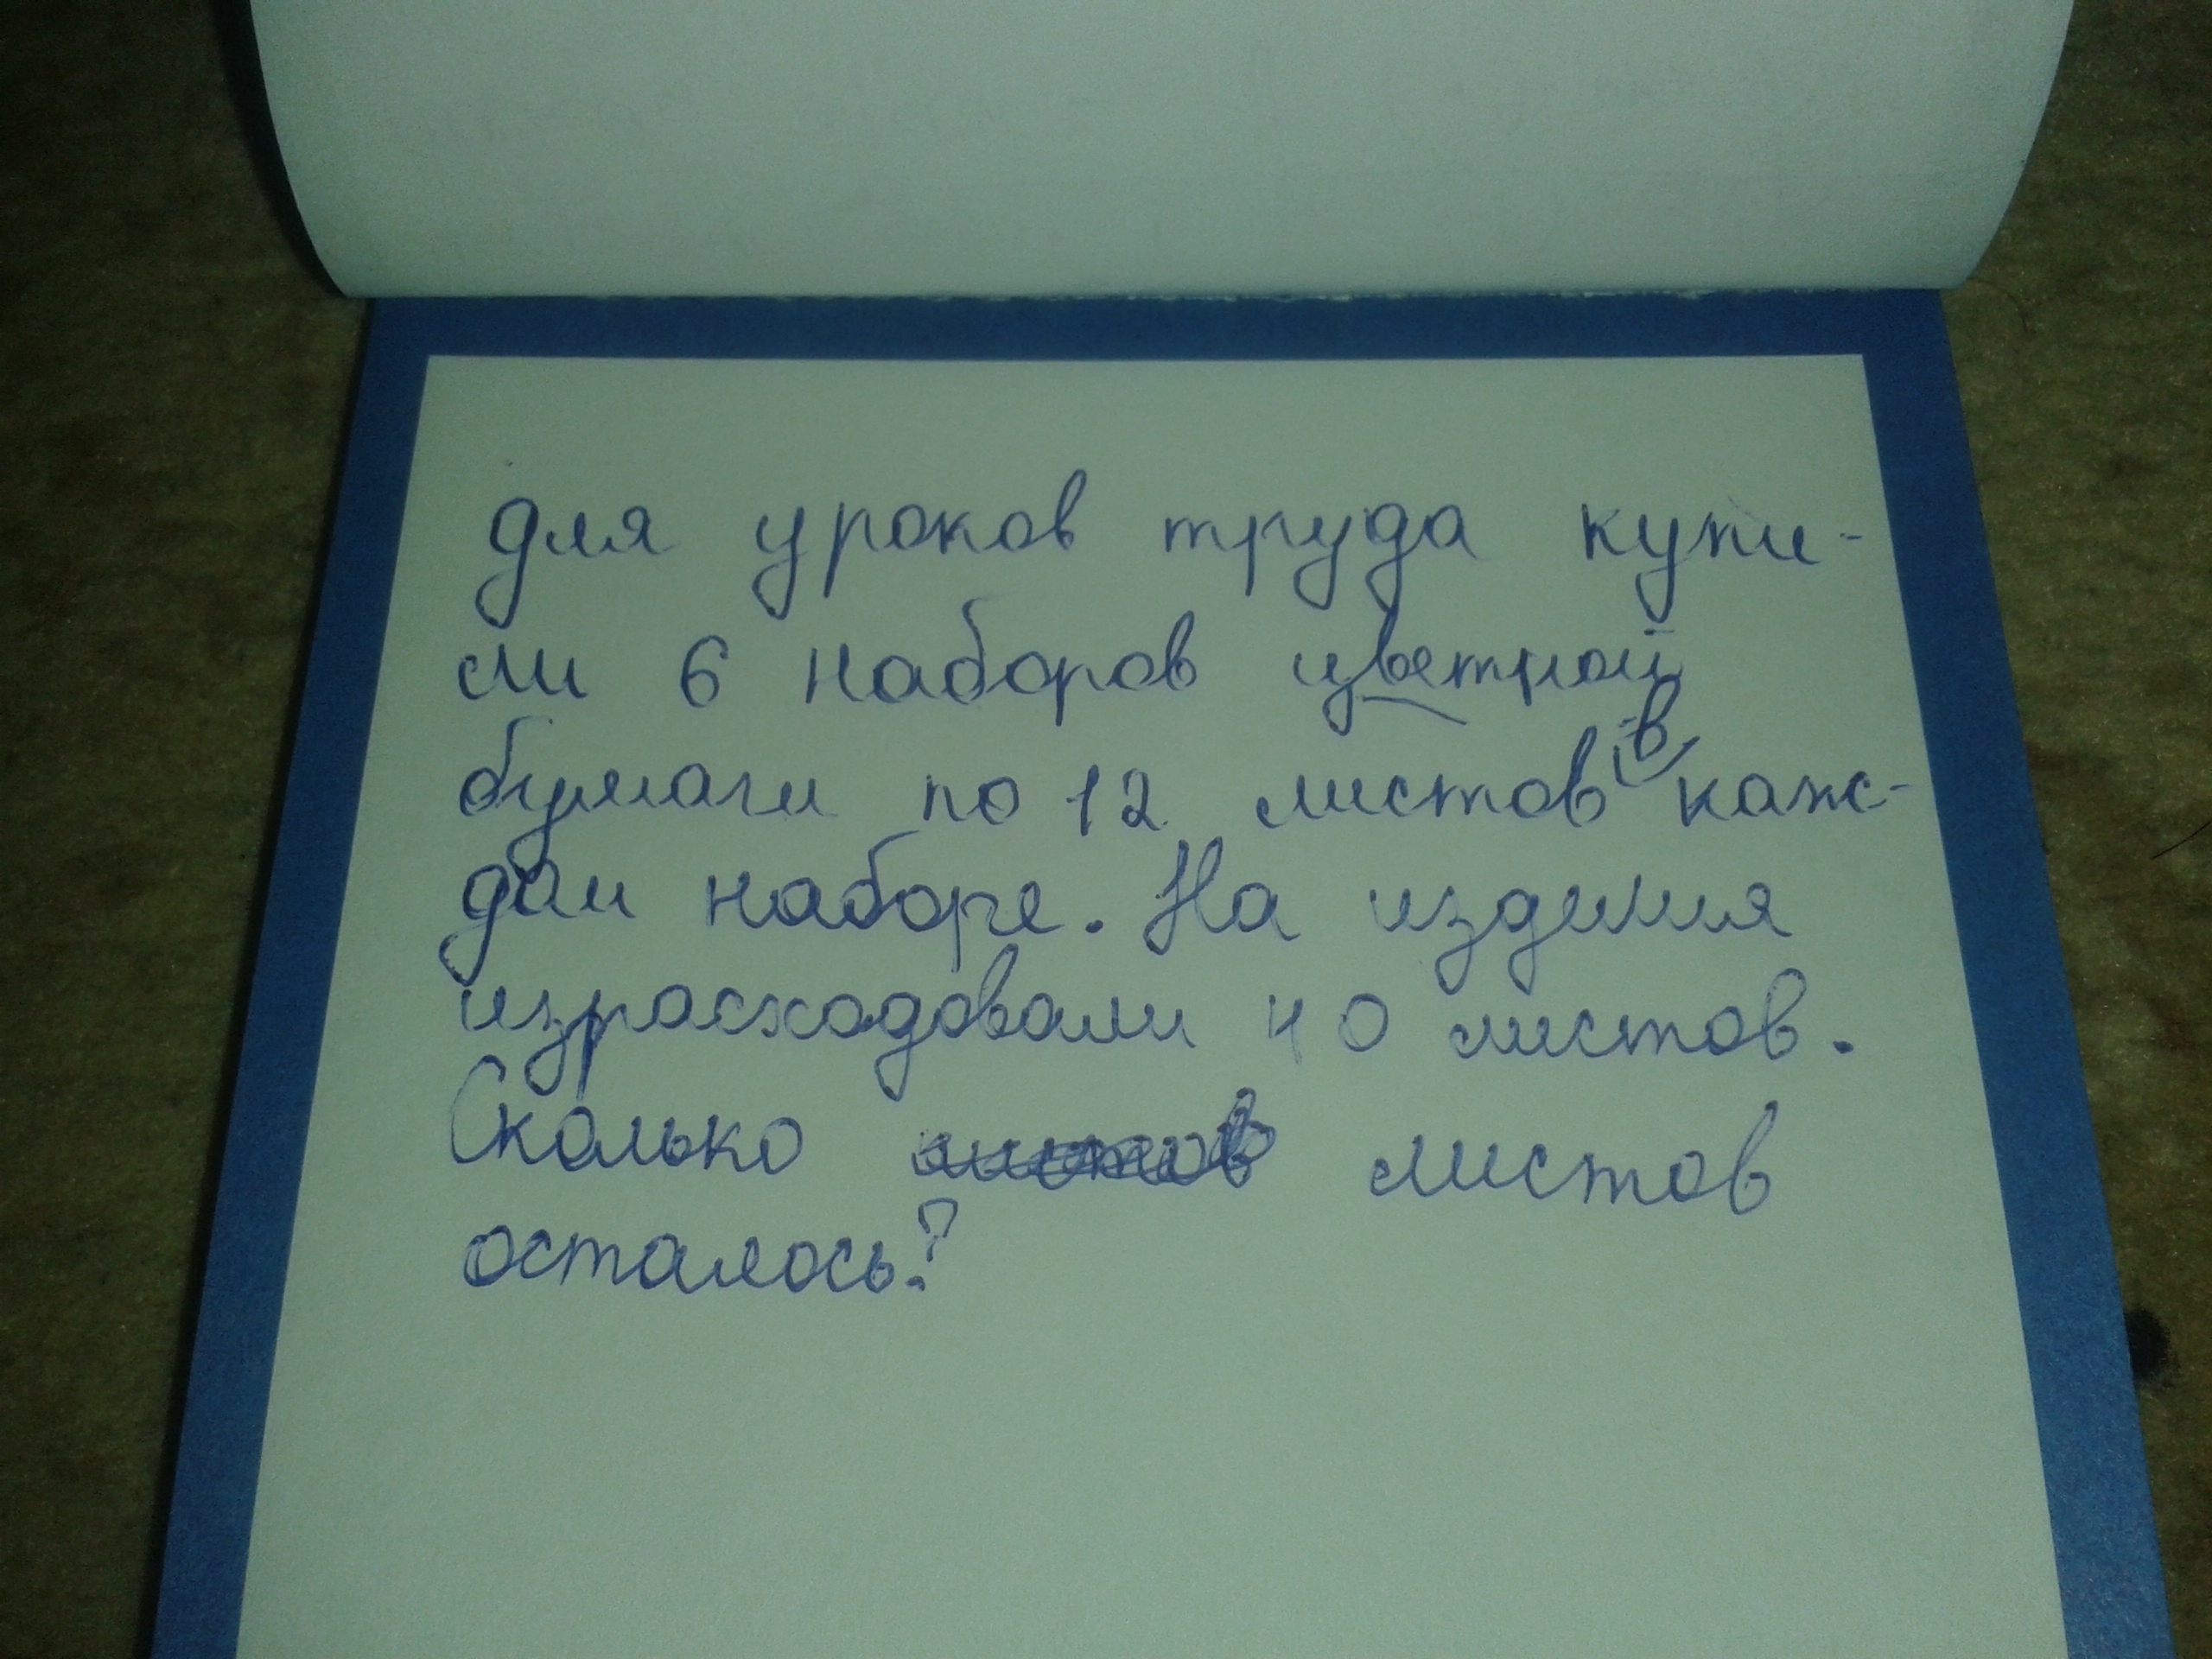 для уроков труда купи-
ли 6 наборов цветной
бумаги по 12 листов в каж-
дом наборе. На изделия
израсходовали 40 листов.
Сколько листов листов
осталось?